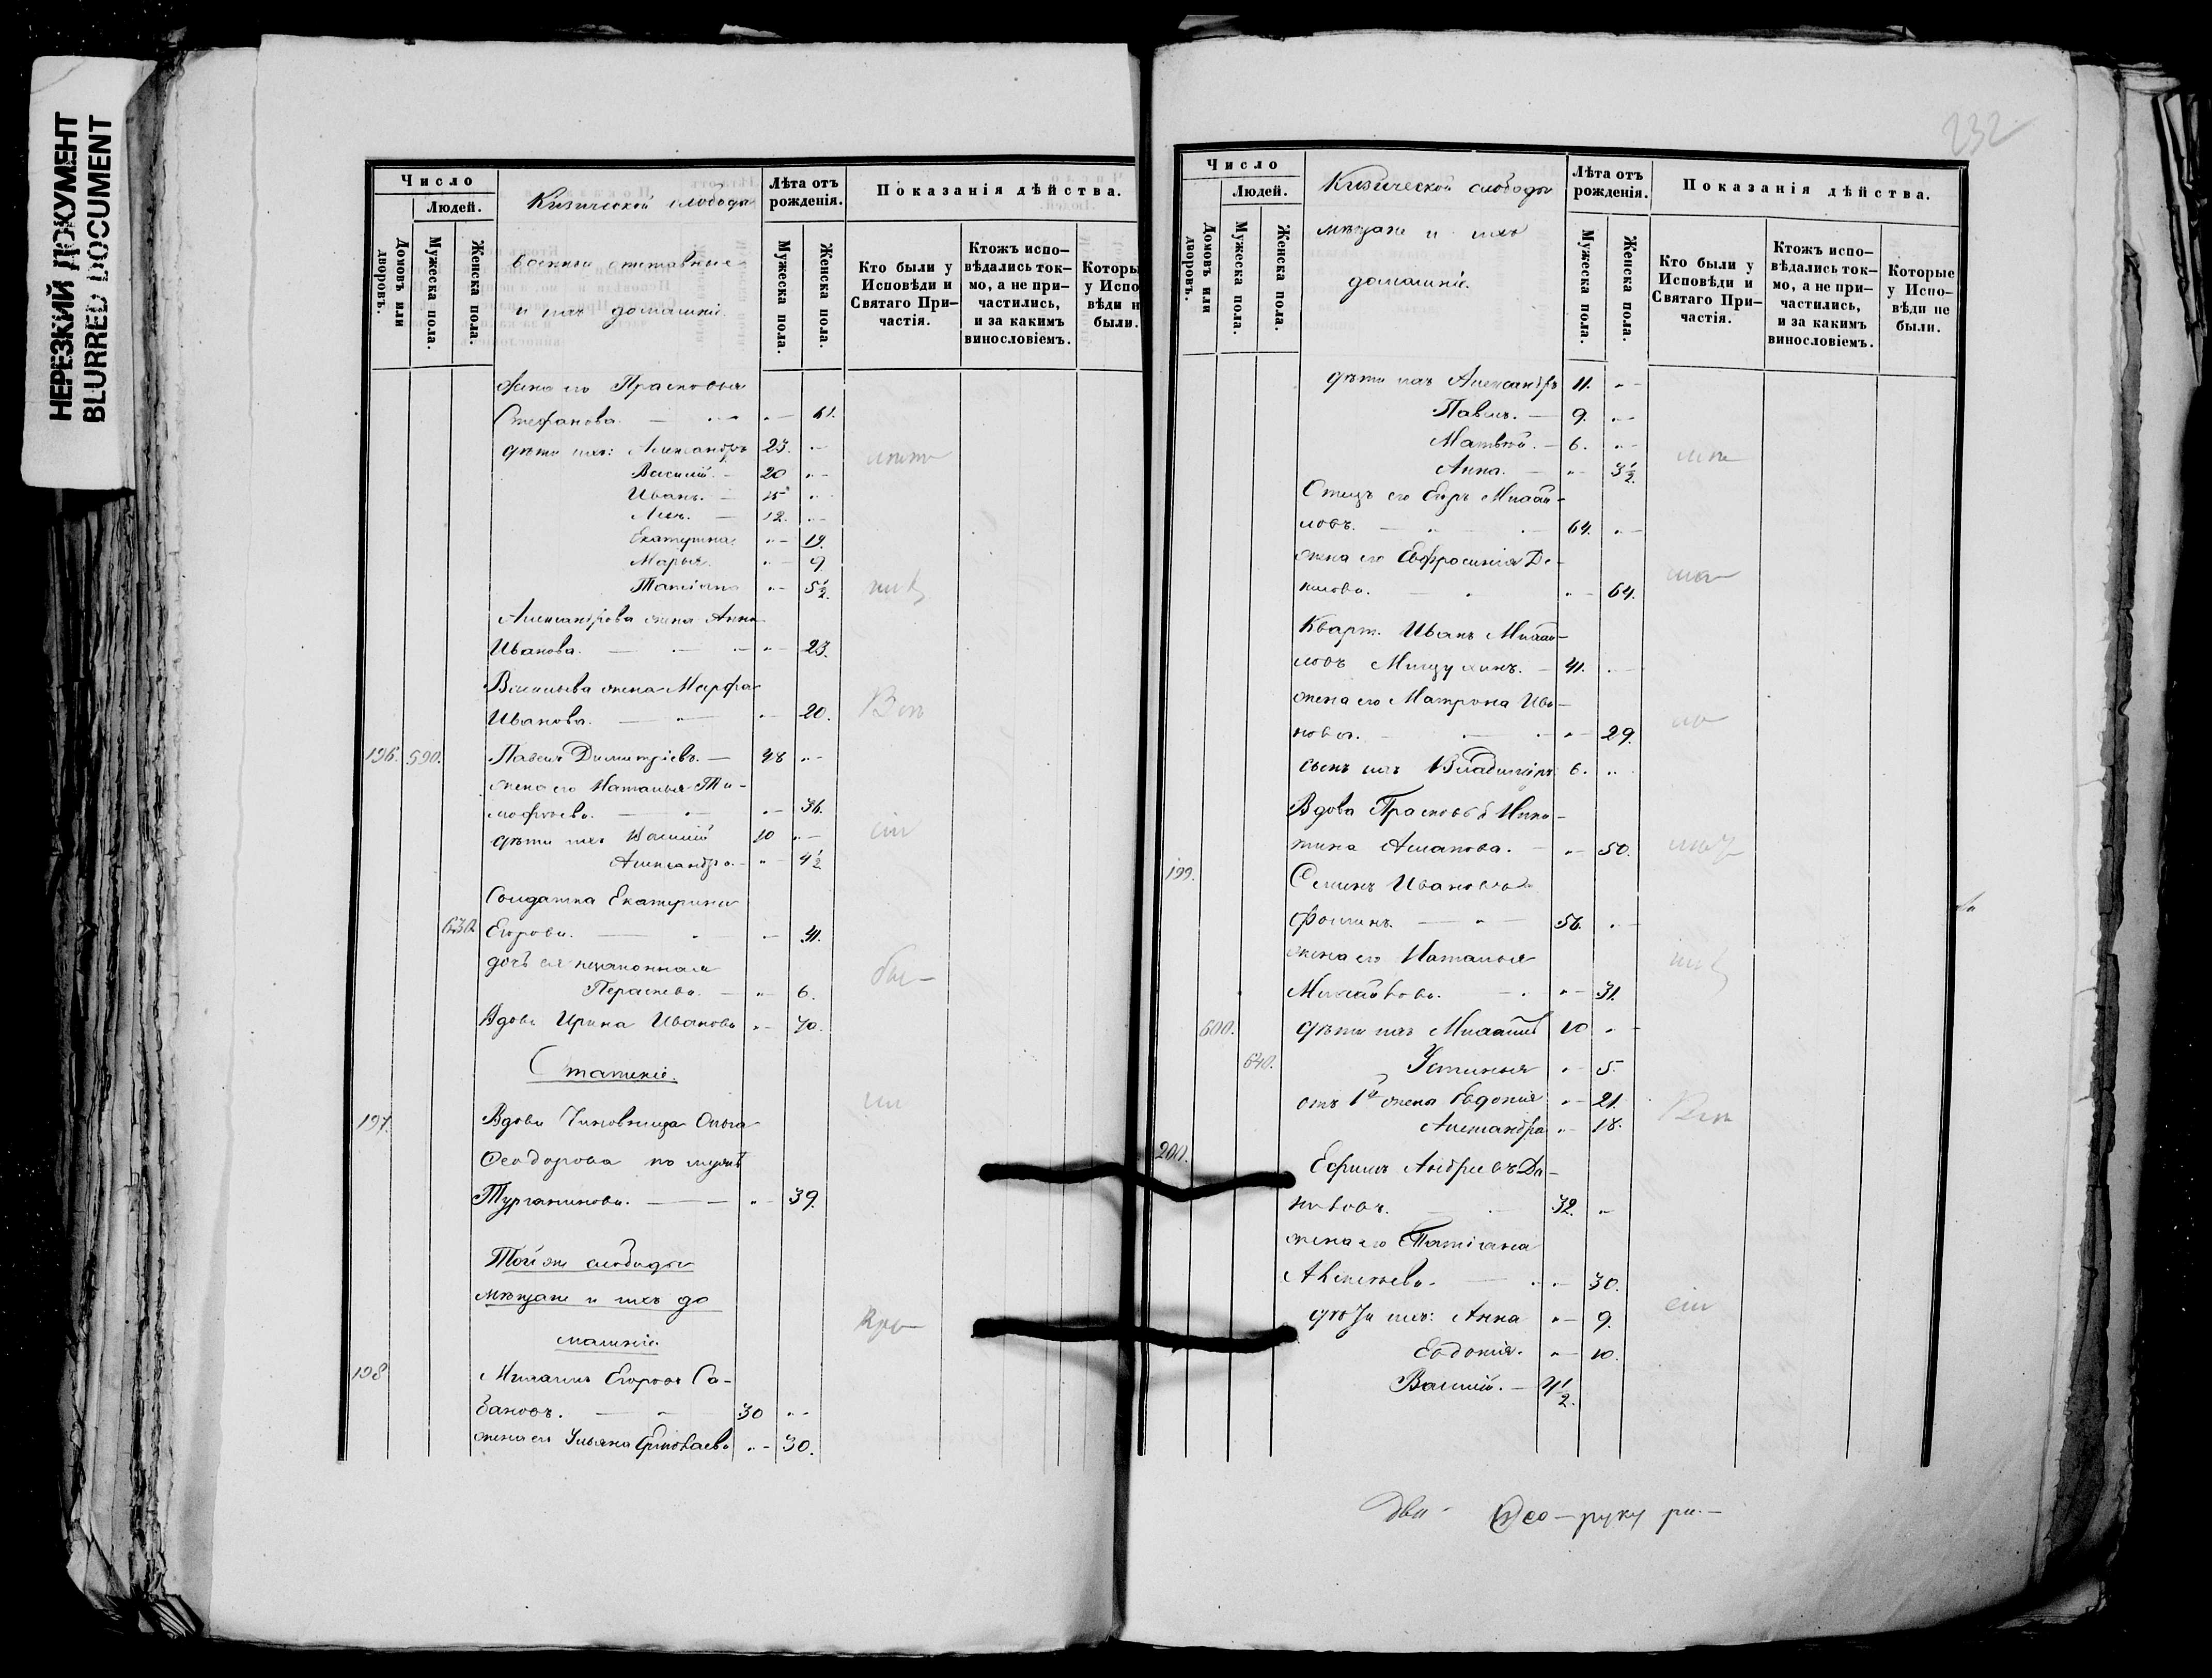 НЕРЕЗКИЙ ДОКУМЕНТ
BLURRED DOCUMENT
Число
Людей.
Домовъ или дворовъ.
Мужеска пола.
Женска пола.
Кизической слободы
военные отставные
и ихъ домашніе.
Лѣта отъ рожденія.
Мужеска пола.
Женска пола.
Показанія дѣйства.
Кто были у Исповѣди и Святаго При-частія.
Ктожъ испо-вѣдались ток-мо, а не при-частились, и за какимъ винословіемъ.
Которы у Испо вѣди н были.
Жена его Прасковья
Стефанова. — „ — 61.
дѣти ихъ: Александръ 23. „
Василій. — 20 „
Иванъ. — 15 „
12. „
Екатерина „ 19.
Марья. „ 9
Татіана „ 5½
Александрова жена Анна
Иванова. — „ 23.
Васильева жена Марфа
Иванова. — „ 20.
196. 590. Павелъ Димитріевъ. — 48 „
жена его Наталья Ти-
мофѣева. „ 36.
дѣти ихъ Василій 10 „
Александра. — „ 4½
Солдатка Екатерина
630. Егорова. — „ 41.
дочь ея незаконная
„ 6.
Вдова Ирина Иванова „ 70.
Статскіе.
197. Вдова Чиновница Ольга
Ѳеодорова по мужѣ
— „ 39.
Той же слободы
мѣщане и ихъ до
машніе.
198 Михаилъ Егоровъ Са-
бановъ. — 30 „
жена его Ульяна „ 30.
232
Число
Людей.
Домовъ или дворовъ.
Мужеска пола.
Женска пола.
Кизической слободы
мѣщане и ихъ
домашніе.
Лѣта отъ рожденія.
Мужеска пола.
Женска пола.
Показанія дѣйства.
Кто были у Исповѣди и Святаго При-частія.
Ктожъ испо-вѣдались ток-мо, а не при-частились, и за какимъ винословіемъ.
Которые у Испо-вѣди не были.
дѣти ихъ Александръ 11. „
Павелъ. — 9. „
Матвѣй. — 6. „
Анна. — „ 3½
Отецъ его Егоръ Михай-
ловъ. — 64. „
жена его Евфросинія Да-
нилова. „ 64.
Кварт. Иванъ Михай-
ловъ — 41. „
жена его Матрона Ива-
нова. — „ 29.
сынъ ихъ Владиміръ 6. „
Вдова Прасковья Ники-
тина — „ 50.
199. Семенъ Ивановъ
Фоминъ. — 56. „
жена его Наталья
Михайлова. — „ 31.
600. дѣти ихъ Михаилъ 10 „
640. Устинья „ 5.
отъ 1й жены Евдокія „ 21.
Александра „ 18.
200. Ефимъ Андреевъ Да-
ниловъ. 32. „
жена его Татіана
Алексѣева. — „ 30.
дѣти ихъ: Анна „ 9.
Евдокія. „ 10.
Василій. — 4½
руку